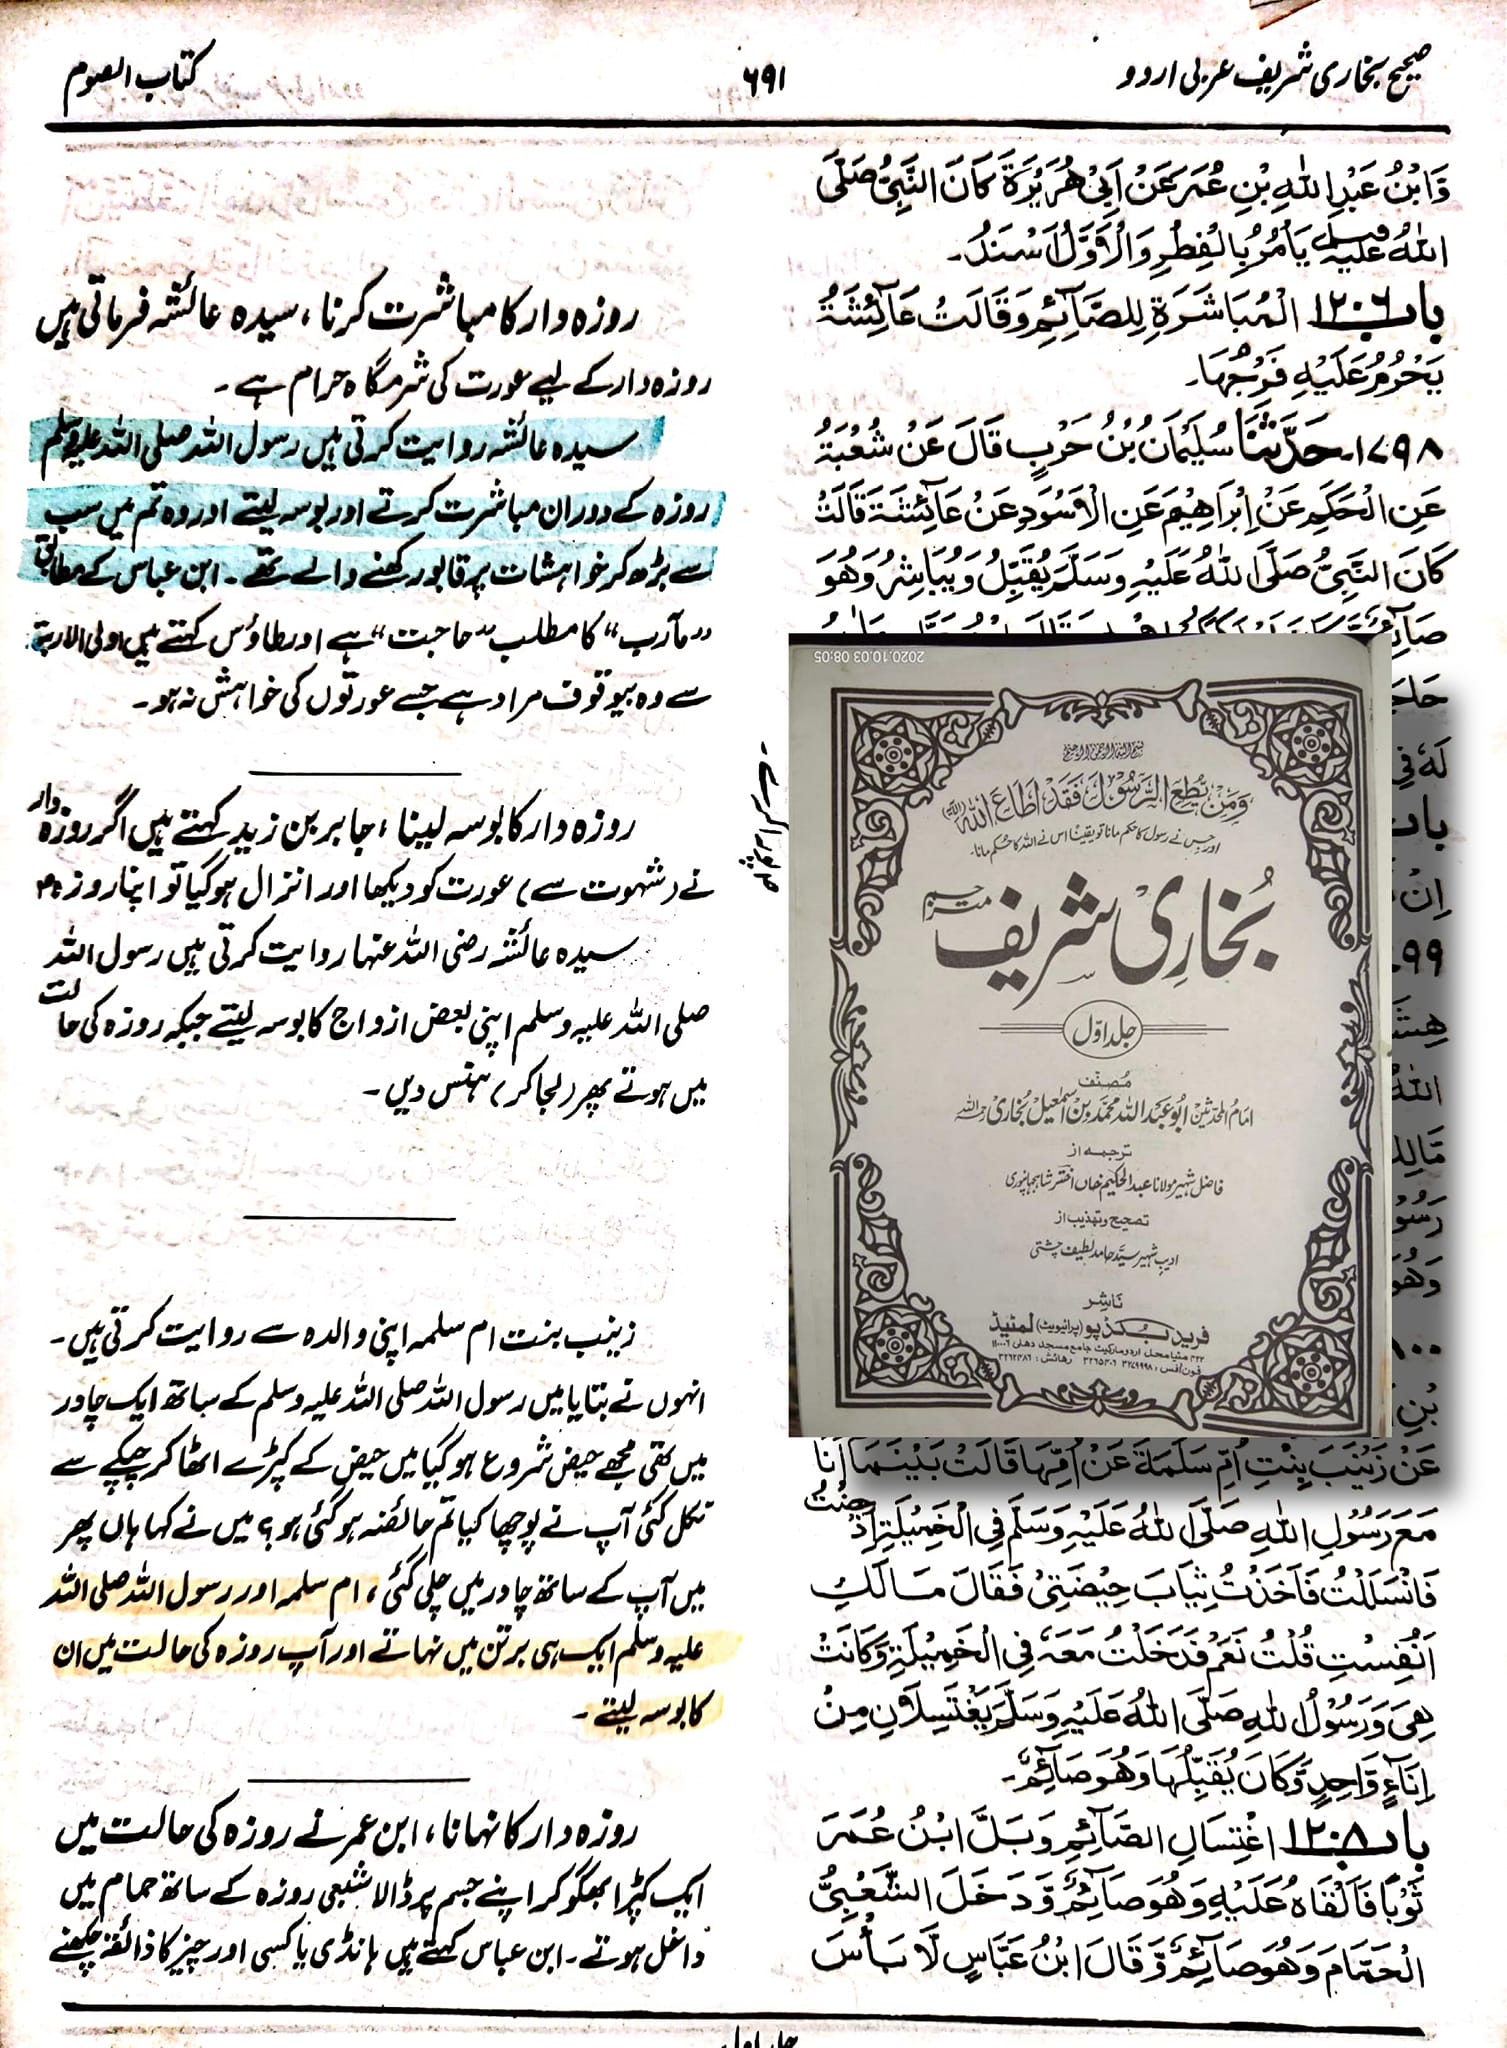 صحیح بخاری شریف عربی اردو
۶۹۱
کتاب الصوم
وَابْنُ عَبْدِ اللّٰهِ بْنِ عُمَرَ عَنْ اَبِیْ هُرَیْرَةَ کَانَ النَّبِیُّ صَلَّی
اللّٰهُ عَلَیْهِ یَاْمُرُ بِالْفِطْرِ وَالْاَوَّلُ اَسْنَدُ۔
باب ۱۲۰۶ الْمُبَاشَرَةِ لِلصَّآئِمِ وَقَالَتْ عَآئِشَةُ
یَحْرُمُ عَلَیْهِ فَرْجُهَا۔
۱۷۹۸۔ حَدَّثَنَا سُلَیْمَانُ بْنُ حَرْبٍ قَالَ عَنْ شُعْبَةَ
عَنِ الْحَکَمِ عَنْ اِبْرَاهِیْمَ عَنِ الْاَسْوَدِ عَنْ عَآئِشَةَ قَالَتْ
کَانَ النَّبِیُّ صَلَّی اللّٰهُ عَلَیْهِ وَسَلَّمَ یُقَبِّلُ وَیُبَاشِرُ وَهُوَ
لَهٗ فِی
باب
اِنْ
۹۹
اللّٰهُ
وَهُوَ
بْنِ
عَنْ زَیْنَبَ بِنْتِ اُمِّ سَلَمَةَ عَنْ اُمِّهَا قَالَتْ بَیْنَمَا اَنَا
مَعَ رَسُوْلِ اللّٰهِ صَلَّی اللّٰهُ عَلَیْهِ وَسَلَّمَ فِی الْخَمِیْلَةِ اِذْ حِضْتُ
فَانْسَلَلْتُ فَاَخَذْتُ ثِیَابَ حِیْضَتِیْ فَقَالَ مَا لَکِ
اَنُفِسْتِ قُلْتُ نَعَمْ فَدَخَلْتُ مَعَهٗ فِی الْخَمِیْلَةِ وَکَانَتْ
هِیَ وَرَسُوْلُ اللّٰهِ صَلَّی اللّٰهُ عَلَیْهِ وَسَلَّمَ یَغْتَسِلَانِ مِنْ
اِنَآءٍ وَّاحِدٍ وَّکَانَ یُقَبِّلُهَا وَهُوَ صَآئِمٌ۔
باب ۱۲۰۸ اغْتِسَالِ الصَّآئِمِ وَبَلَّ ابْنُ عُمَرَ
ثَوْبًا فَاَلْقَاهُ عَلَیْهِ وَهُوَ صَآئِمٌ وَّدَخَلَ الشَّعْبِیُّ
الْحَمَّامَ وَهُوَ صَآئِمٌ وَّقَالَ ابْنُ عَبَّاسٍ لَا بَاْسَ
روزہ دار کا مباشرت کرنا، سیدہ عائشہ فرماتی ہیں
روزہ دار کے لیے عورت کی شرمگاہ حرام ہے۔
سیدہ عائشہ روایت کرتی ہیں رسول اللہ صلی اللہ علیہ وسلم
روزہ کے دوران مباشرت کرتے اور بوسہ لیتے اور وہ تم میں سب
سے بڑھ کر خواہشات پر قابو رکھنے والے تھے۔ ابن عباس کے مطابق
”مآرب“ کا مطلب ”حاجت“ ہے اور طاؤس کہتے ہیں اولی الاربۃ
سے وہ بیوقوف مراد ہے جسے عورتوں کی خواہش نہ ہو۔
روزہ دار کا بوسہ لینا، جابر بن زید کہتے ہیں اگر روزہ دار
نے (شہوت سے) عورت کو دیکھا اور انزال ہوگیا تو اپنا روزہ
پورا کرے۔
سیدہ عائشہ رضی اللہ عنہا روایت کرتی ہیں رسول اللہ
صلی اللہ علیہ وسلم اپنی بعض ازواج کا بوسہ لیتے جبکہ روزہ کی حالت
میں ہوتے پھر (لجا کر) ہنس دیں۔
زینب بنت ام سلمہ اپنی والدہ سے روایت کرتی ہیں۔
انہوں نے بتایا میں رسول اللہ صلی اللہ علیہ وسلم کے ساتھ ایک چادر
میں تھی مجھے حیض شروع ہوگیا میں حیض کے کپڑے اٹھا کر چپکے سے
نکل گئی آپ نے پوچھا کیا تم حائضہ ہوگئی ہو؟ میں نے کہا ہاں پھر
میں آپ کے ساتھ چادر میں چلی گئی، ام سلمہ اور رسول اللہ صلی اللہ
علیہ وسلم ایک ہی برتن میں نہاتے اور آپ روزہ کی حالت میں ان
کا بوسہ لیتے۔
روزہ دار کا نہانا، ابن عمر نے روزہ کی حالت میں
ایک کپڑا بھگو کر اپنے جسم پر ڈالا شعبی روزہ کے ساتھ حمام میں
داخل ہوتے۔ ابن عباس کہتے ہیں ہانڈی یا کسی اور چیز کا ذائقہ چکھنے
جلد اول
2020.10.03 08:05
بسم اللہ الرحمن الرحیم
وَمَنْ یُّطِعِ الرَّسُوْلَ فَقَدْ اَطَاعَ اللّٰهَ
اور جس نے رسول کا حکم مانا تو یقینا اس نے اللہ کا حکم مانا۔
بُخاری شریف مترجم
جلد اوّل
مصنف
امام المحدثین ابو عبد اللہ محمد بن اسمٰعیل بخاری رحمۃ اللہ
ترجمہ از
فاضل شہیر مولانا عبد الحکیم خاں اختر شاہجہانپوری
تصحیح و تہذیب از
ادیب شہیر سید حامد لطیف چشتی
ناشر
فرید بکڈپو (پرائیویٹ) لمٹیڈ
۴۲۲ مٹیا محل اردو مارکیٹ جامع مسجد دھلی ۱۱۰۰۰۶